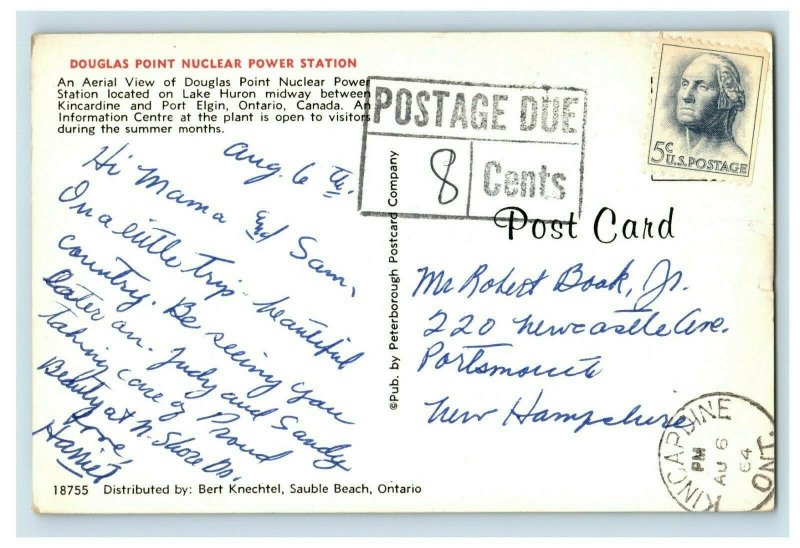 DOUGLAS POINT NUCLEAR POWER STATION
An Aerial View of Douglas Point Nuclear Power
Station located on Lake Huron midway between
Kincardine and Port Elgin, Ontario, Canada. An
Information Centre at the plant is open to visitors
during the summer months.
POSTAGE DUE
8 Cents
5c
U.S. POSTAGE
Aug. 6 th.
Hi Mama and Sam,
On a little trip - beautiful
country. Be seeing you
later on. Judy and Sandy
taking care of Proud
Beauty at N. Shore Dr.
Love,
Harriet
©Pub. by Peterborough Postcard Company
Post Card
Mr Robert Boak, Jr.
220 Newcastle Ave.
Portsmouth
New Hampshire
KINCARDINE
PM
AU 6
64
ONT.
18755 Distributed by: Bert Knechtel, Sauble Beach, Ontario